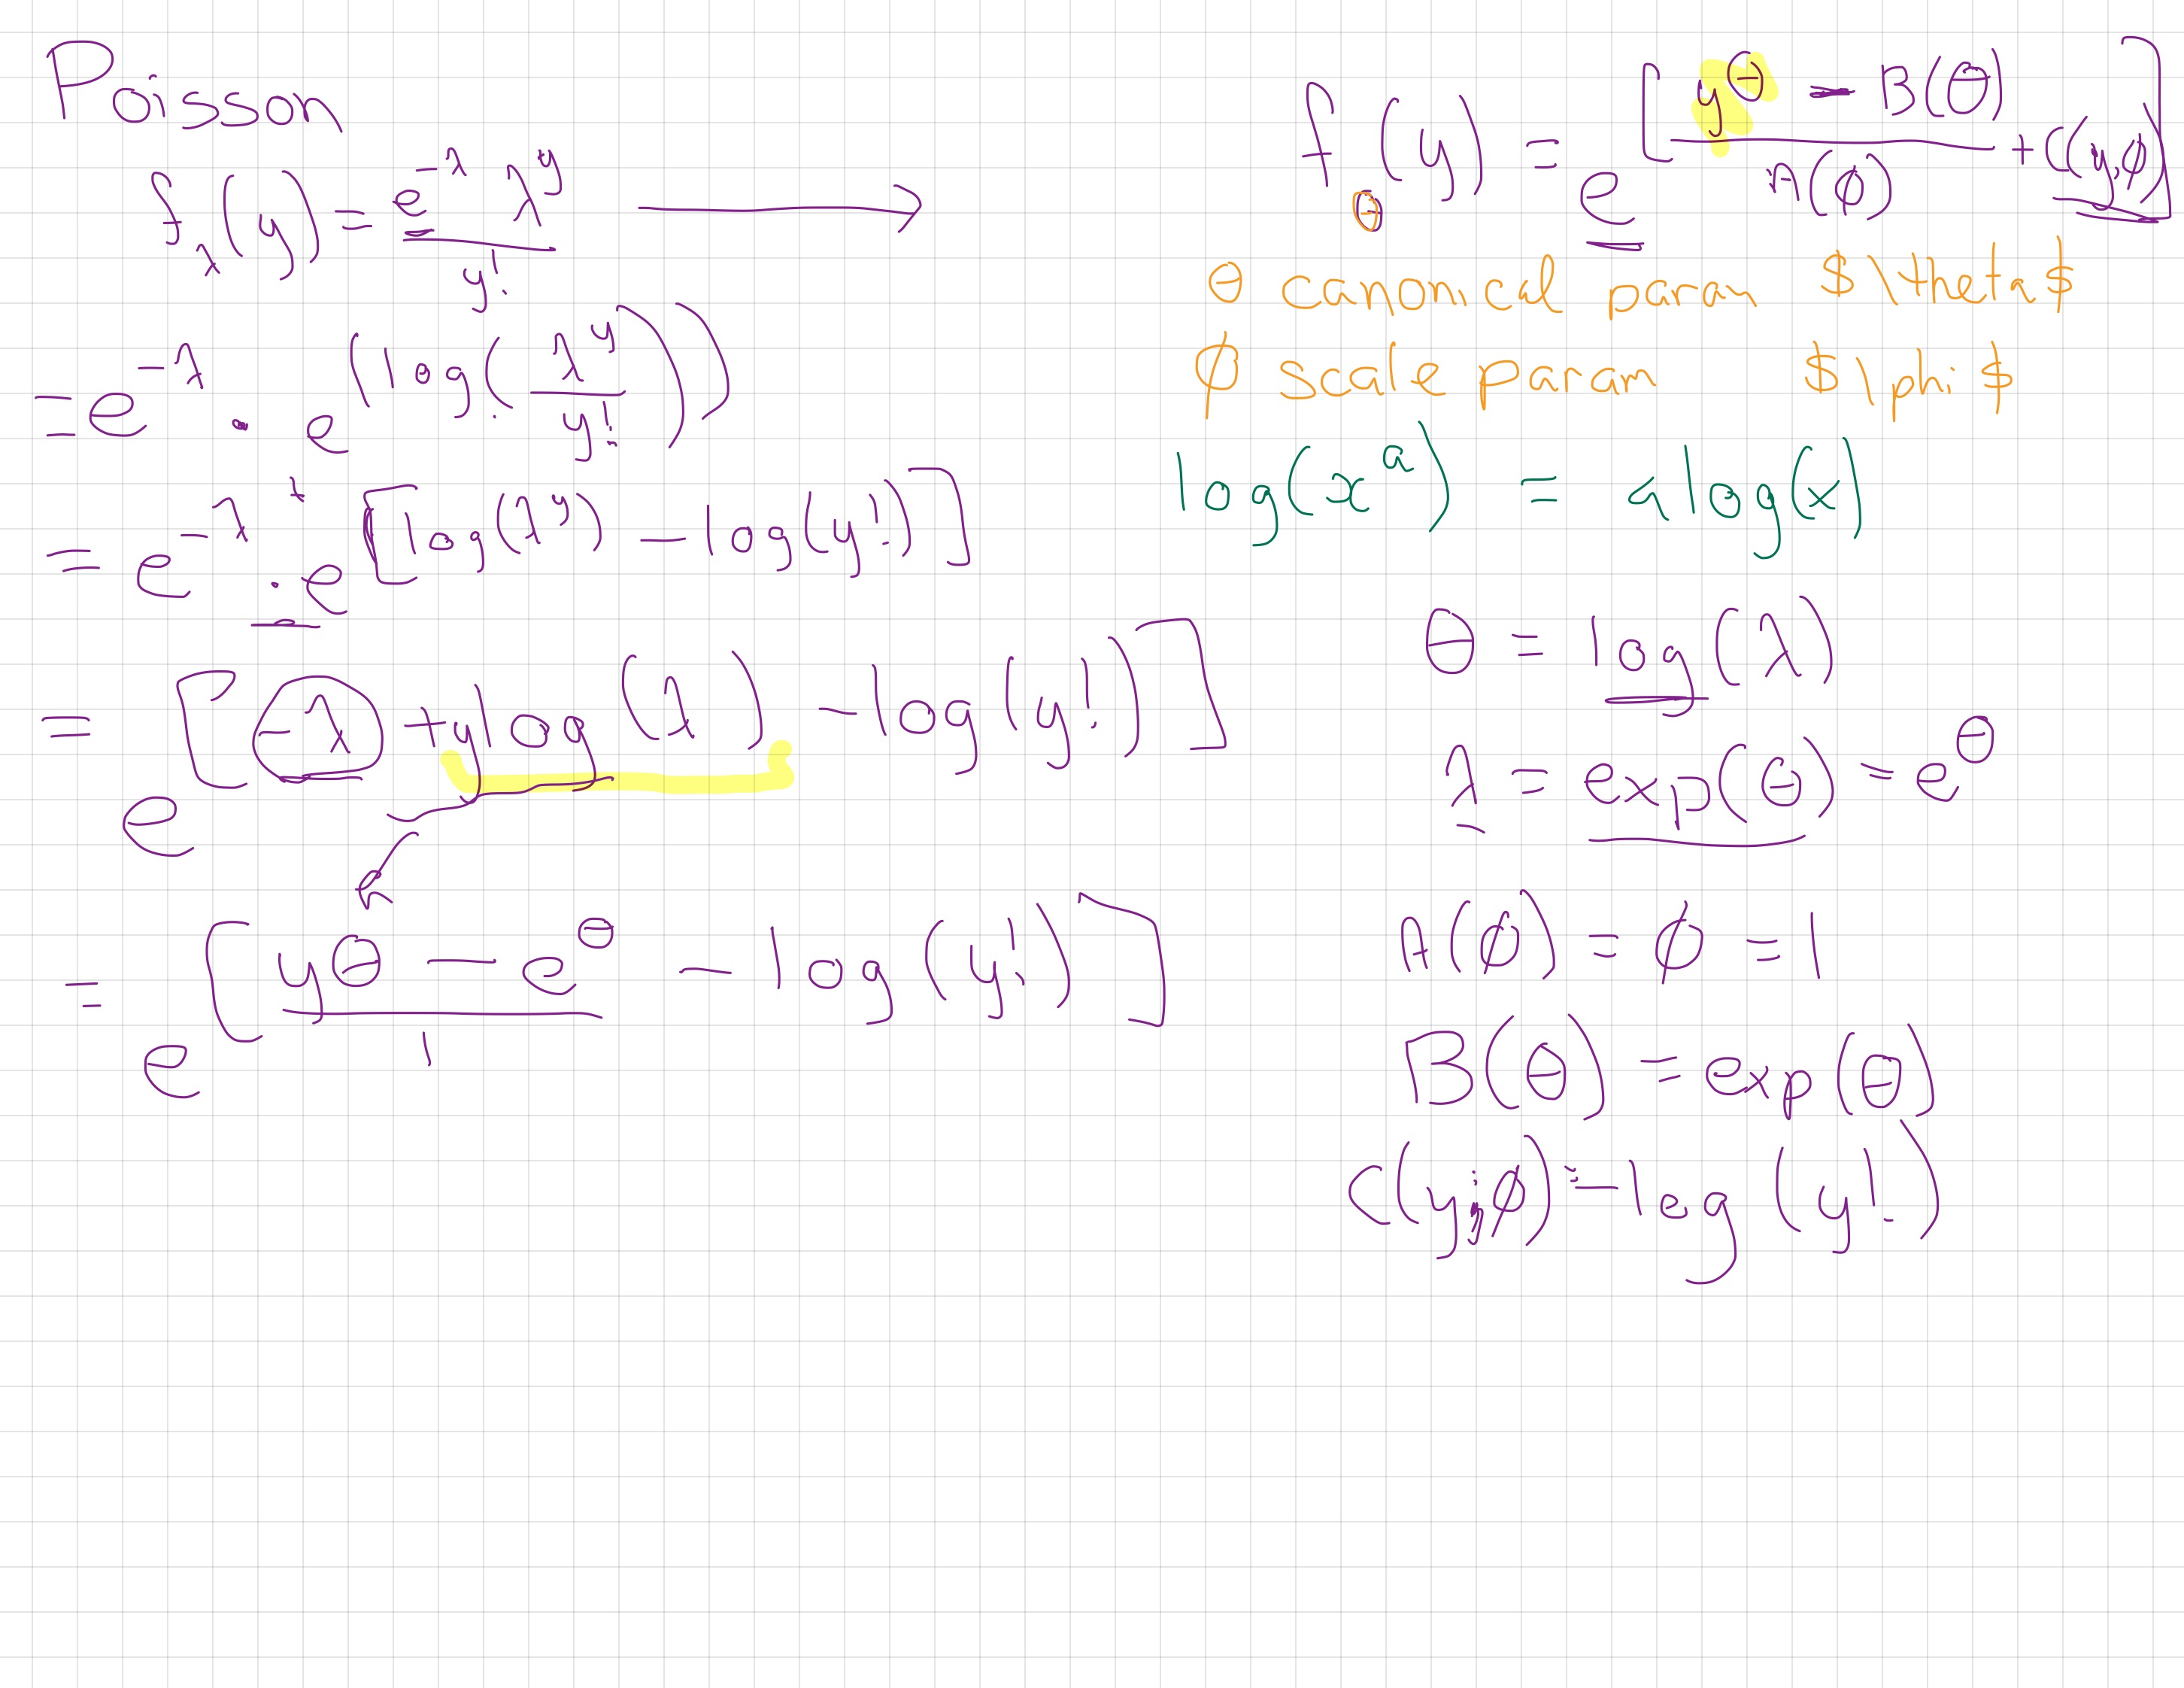 Poisson
f_λ(y) = e^{-λ} λ^y / y! →
= e^{-λ} · e^{(log(λ^y / y!))}
= e^{-λ} · e^{+[log(λ^y) - log(y!)]}
= e^{[-λ + y log(λ) - log(y!)]}
= e^{[(yθ - e^θ)/1 - log(y!)]}
f_θ(y) = e^{[(yθ - B(θ))/A(φ) + C(y,φ)]}
θ canonical param $\theta$
φ scale param $\phi$
log(x^a) = a log(x)
θ = log(λ)
λ = exp(θ) = e^θ
A(φ) = φ = 1
B(θ) = exp(θ)
C(y;φ) = -log(y!)